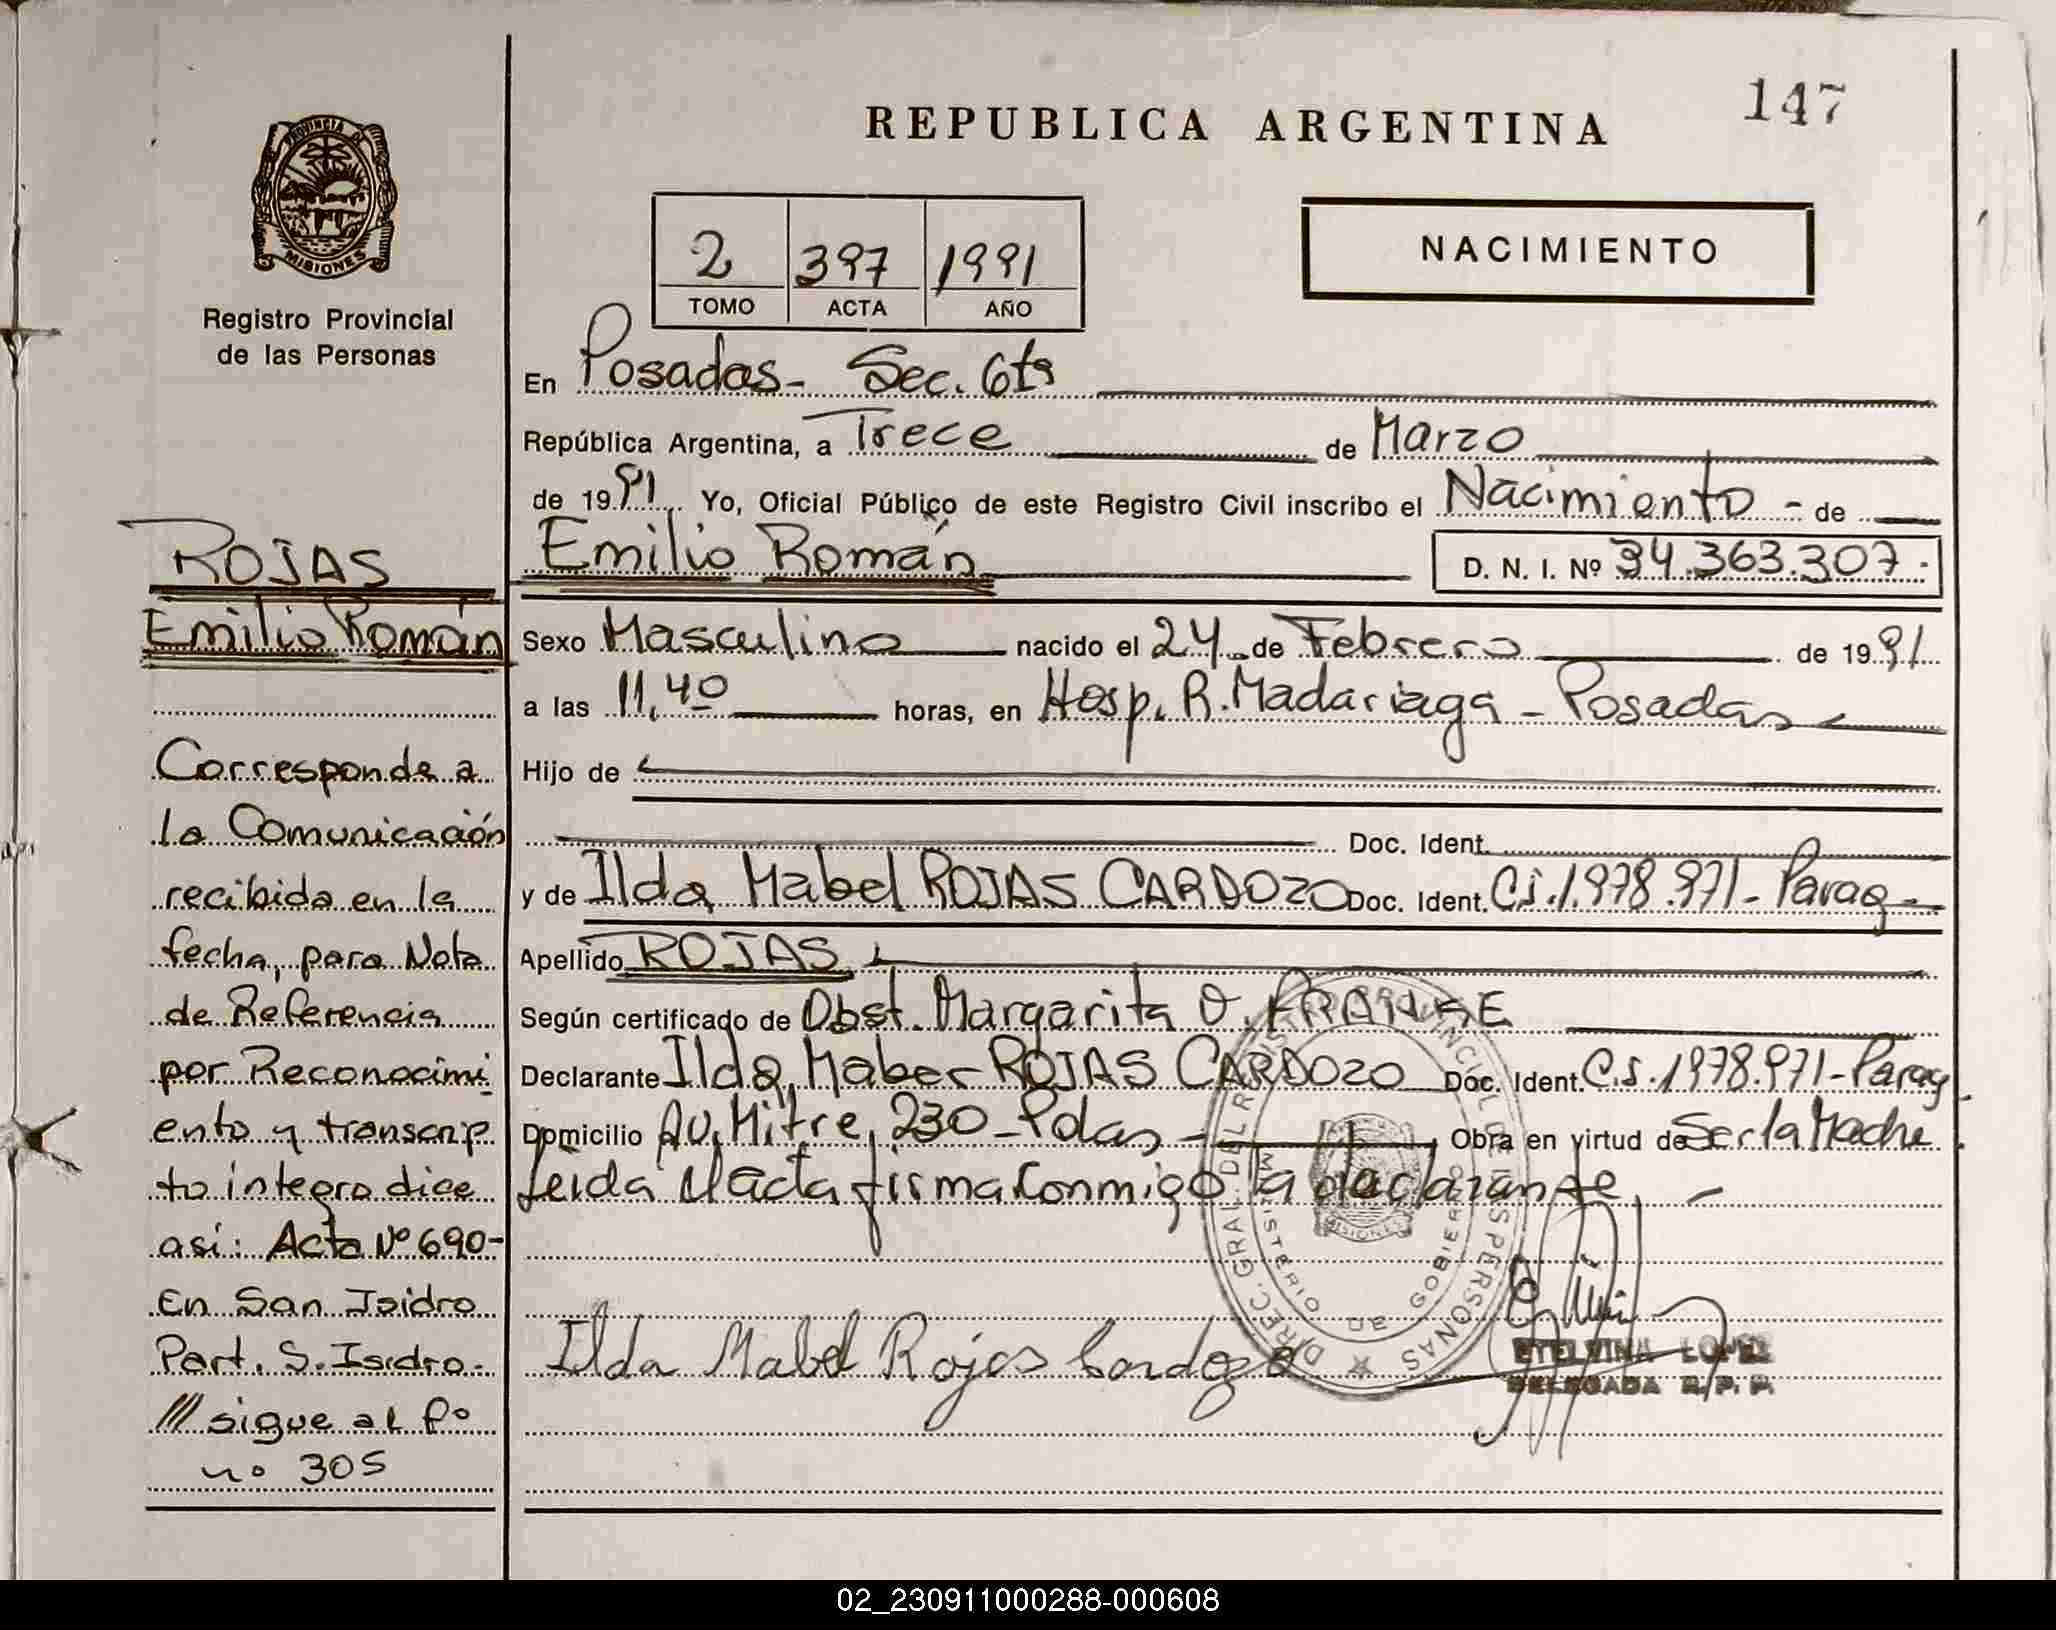 147
REPUBLICA ARGENTINA
PROVINCIA DE
MISIONES
Registro Provincial
de las Personas
2 397 1991
TOMO ACTA AÑO
NACIMIENTO
En Posadas - Sec. 6ta
República Argentina, a Trece de Marzo
de 1991 Yo, Oficial Público de este Registro Civil inscribo el Nacimiento - de
Emilio Román D. N. I. Nº 34.363.307.
Sexo Masculino nacido el 24 de Febrero de 1991
a las 11,40 horas, en Hosp. R. Madariaga - Posadas
Hijo de
Doc. Ident.
y de Ilda Mabel ROJAS CARDOZO Doc. Ident. C.i. 1.978.971 - Parag
Apellido ROJAS
Según certificado de Obst. Margarita O.
Declarante Ilda Mabel ROJAS CARDOZO Doc. Ident. C.i. 1978.971 - Parag
Domicilio Av. Mitre, 230 - Pdas - Obra en virtud de Ser la Madre
Leida el acta firma conmigo la declarante. -
Ilda Mabel Rojas Cardozo
DIREC. GRAL. DEL REGISTRO PROVINCIAL DE LAS PERSONAS
MINISTERIO DE GOBIERNO
MISIONES
ETELVINA LOPEZ
DELEGADA R. P. P.
ROJAS
Emilio Román
Corresponde a
la Comunicación
recibida en la
fecha, para Nota
de Referencia
por Reconocimi
ento y transcrip
to integro dice
asi: Acta Nº 690-
En San Isidro
Part. S. Isidro.-
/// sigue al fº
nº 305
02_230911000288-000608